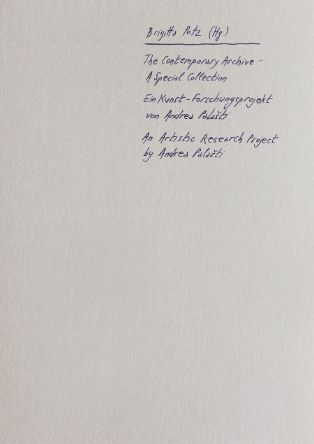 Brigitta Potz (Hg)
The Contemporary Archive –
A Special Collection
Ein Kunst-Forschungsprojekt
von Andrea Palašti
An Artistic Research Project
by Andrea Palašti